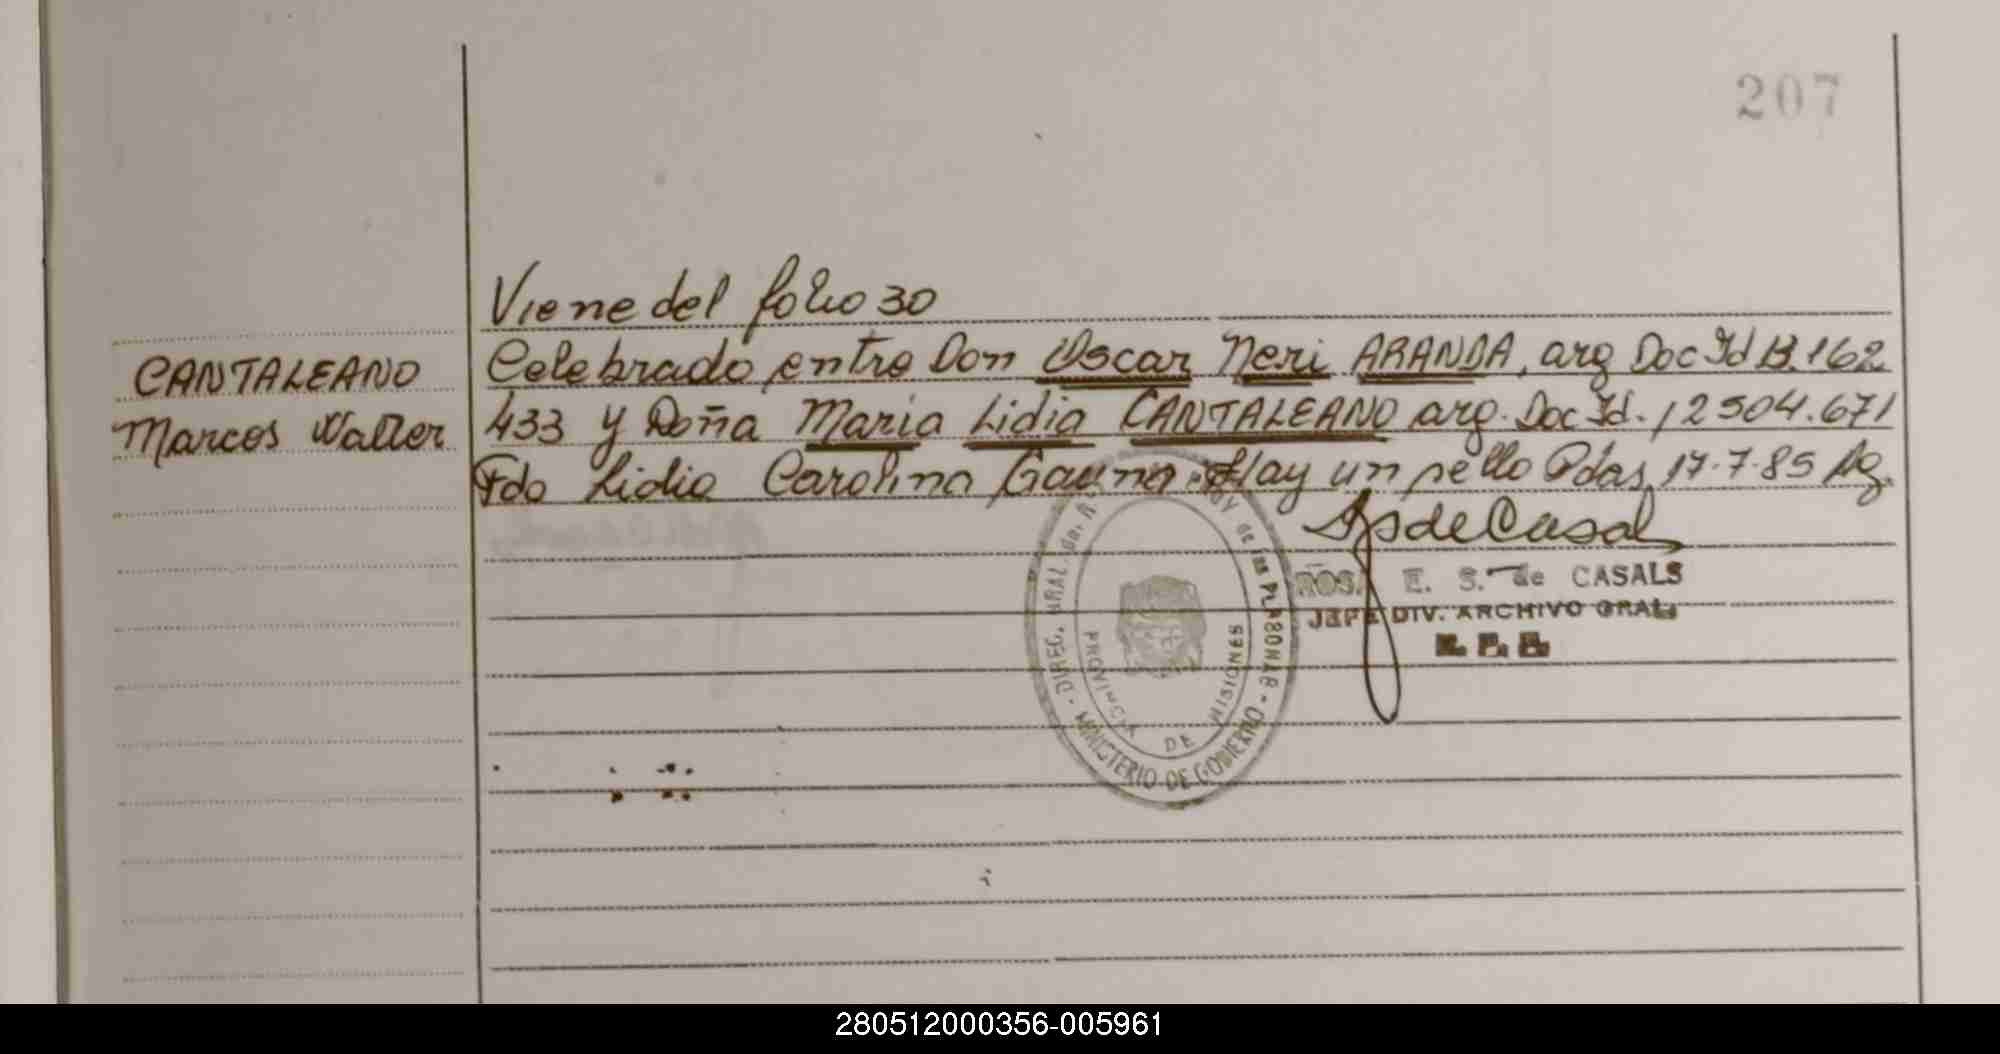 207
Viene del folio 30
CANTALEANO
Marcos Walter
Celebrado entre Don Oscar Neri ARANDA, arg Doc Id 13.162
433 y Doña Maria Lidia CANTALEANO arg. Doc Id. 12504.671
Fdo Lidia Carolina Gauna. Hay un sello Pdas, 17.7.85 Ag.
ROS. E. S. de CASALS
JEFE DIV. ARCHIVO GRAL.
R. P. P.
DIREC. GRAL. del R. de las PERSONAS - MINISTERIO DE GOBIERNO -
PROVINCIA DE MISIONES
280512000356-005961